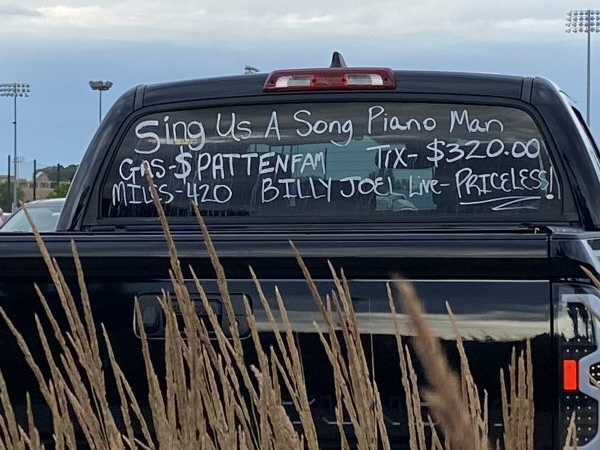 Sing Us A Song Piano Man
GAS-$PATTENFAM TIX-$320.00
MILES-420 BILLY JOEL Live-PRICELESS!